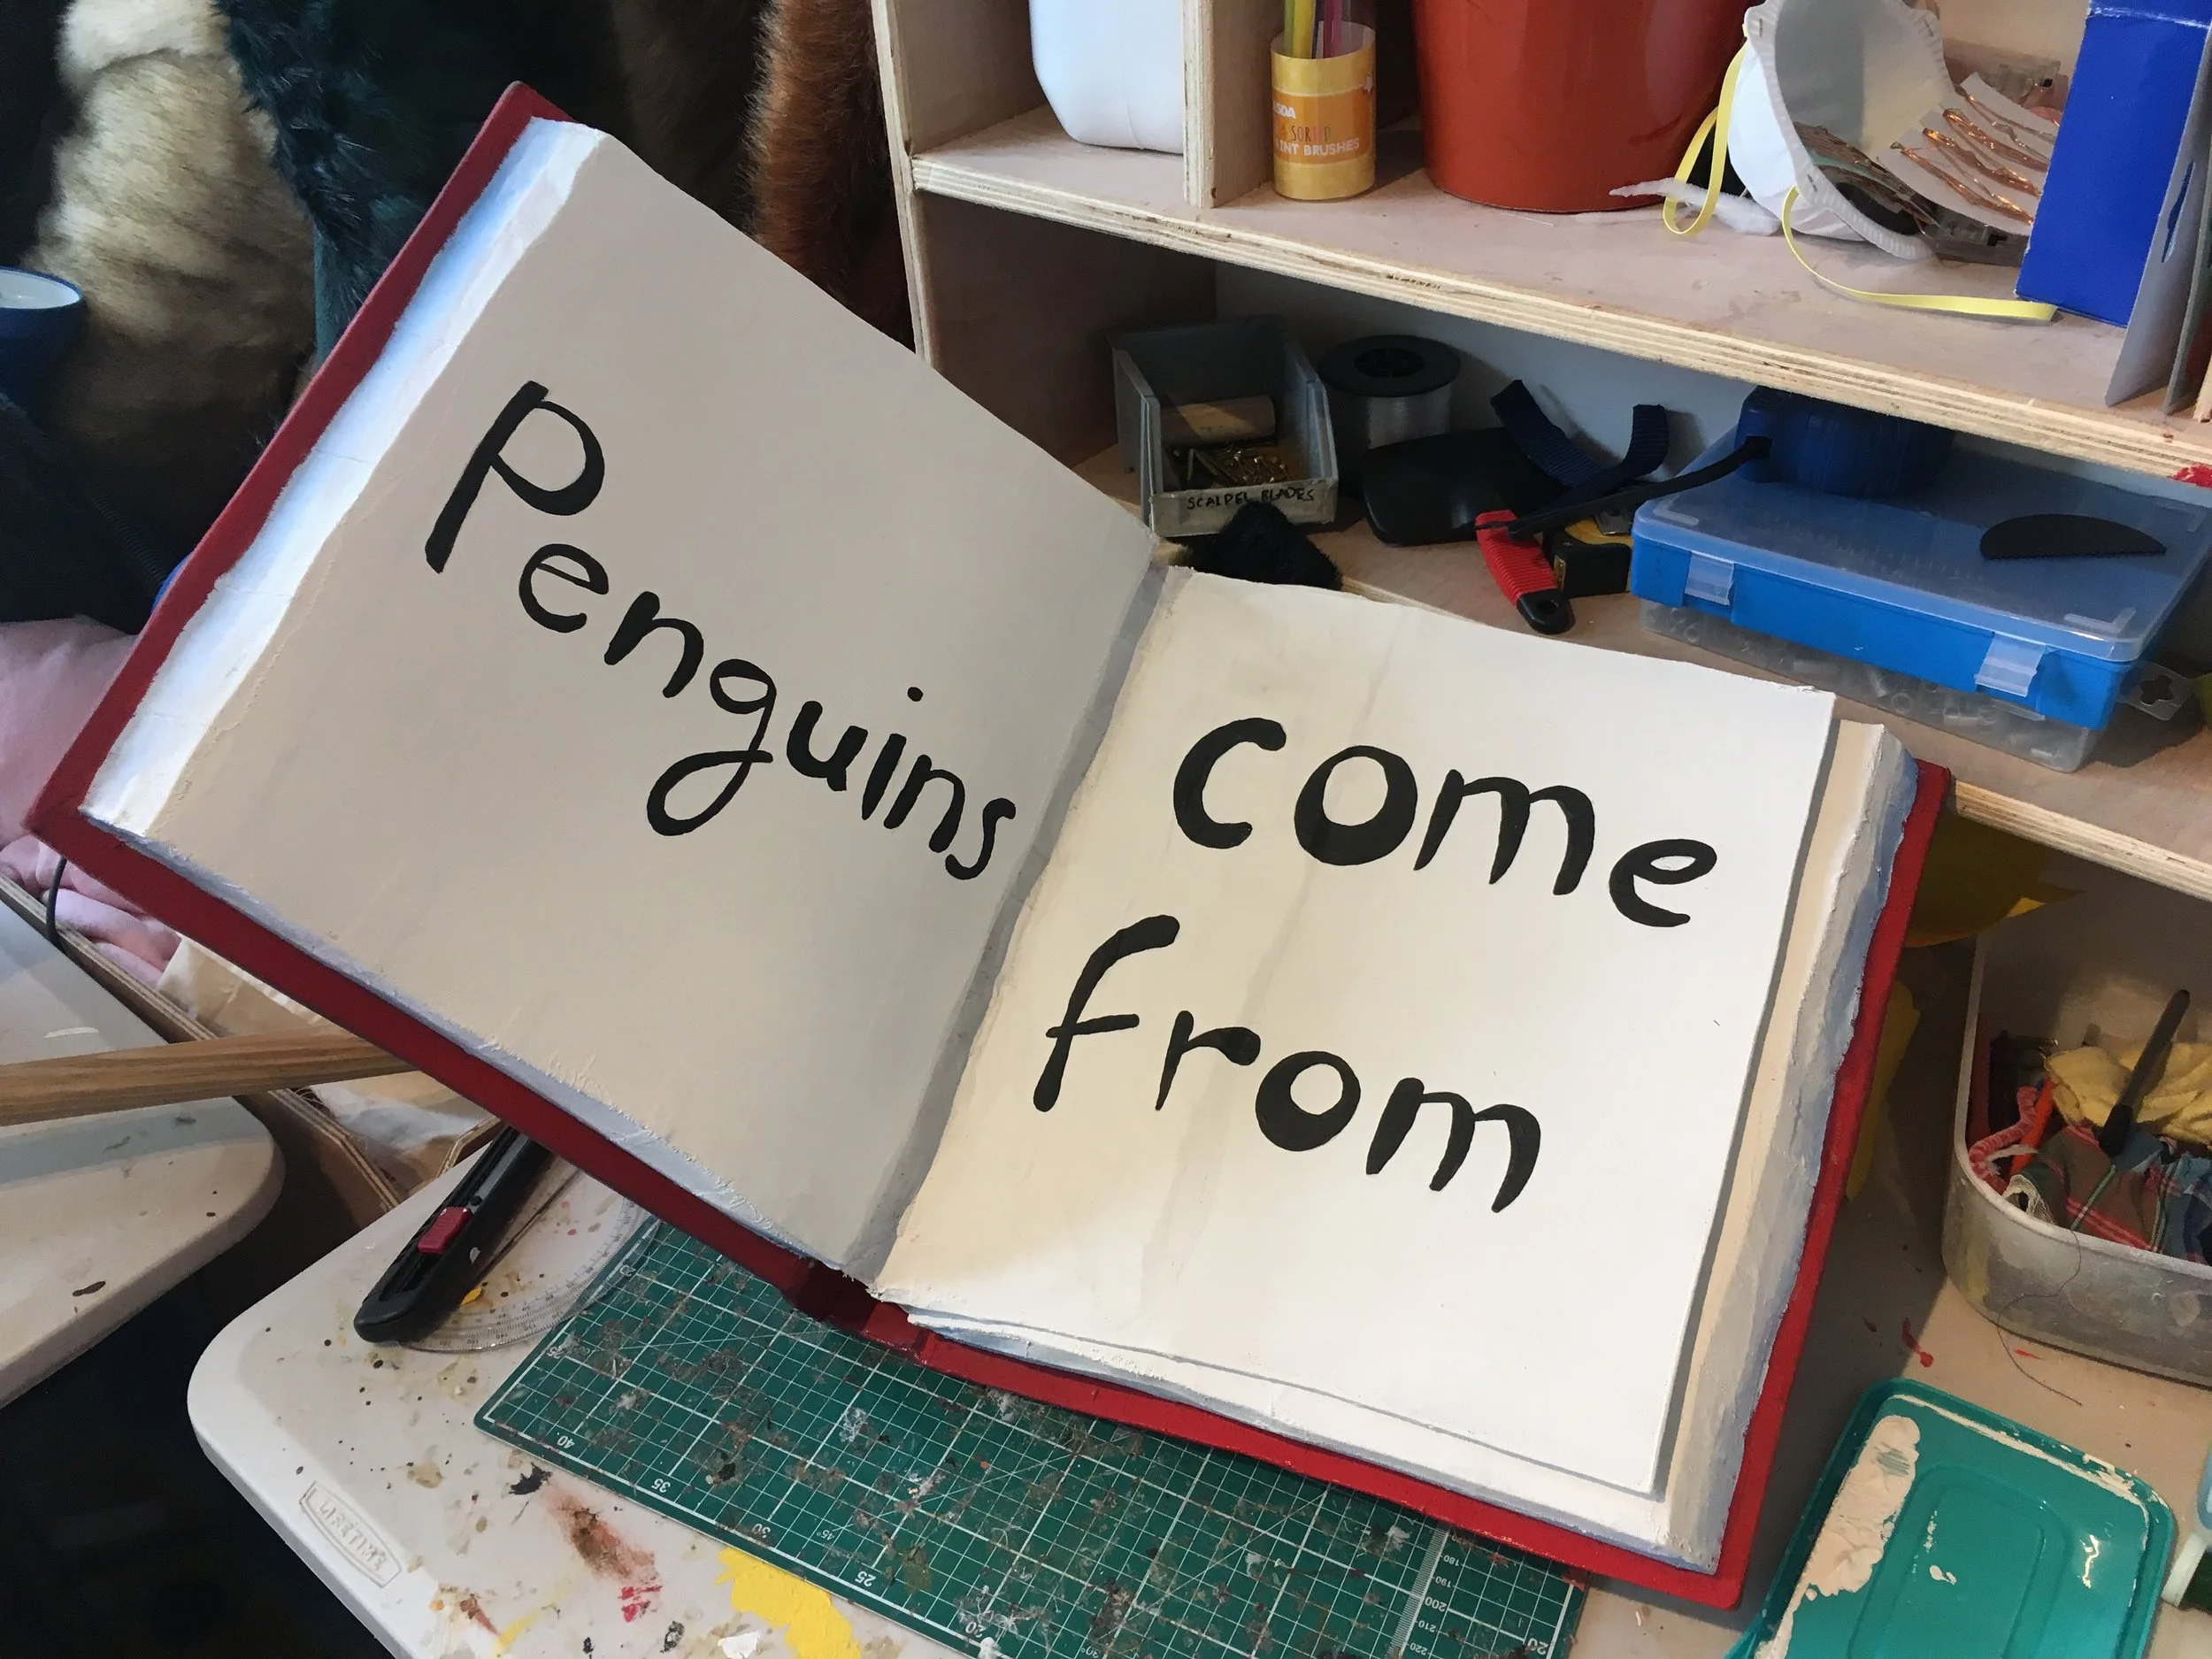 Penguins
come
from
ASDA
PAINT BRUSHES
SCALPEL BLADES
LIFETIME
40
35
30
25
20
45°
180
190
200
210
220